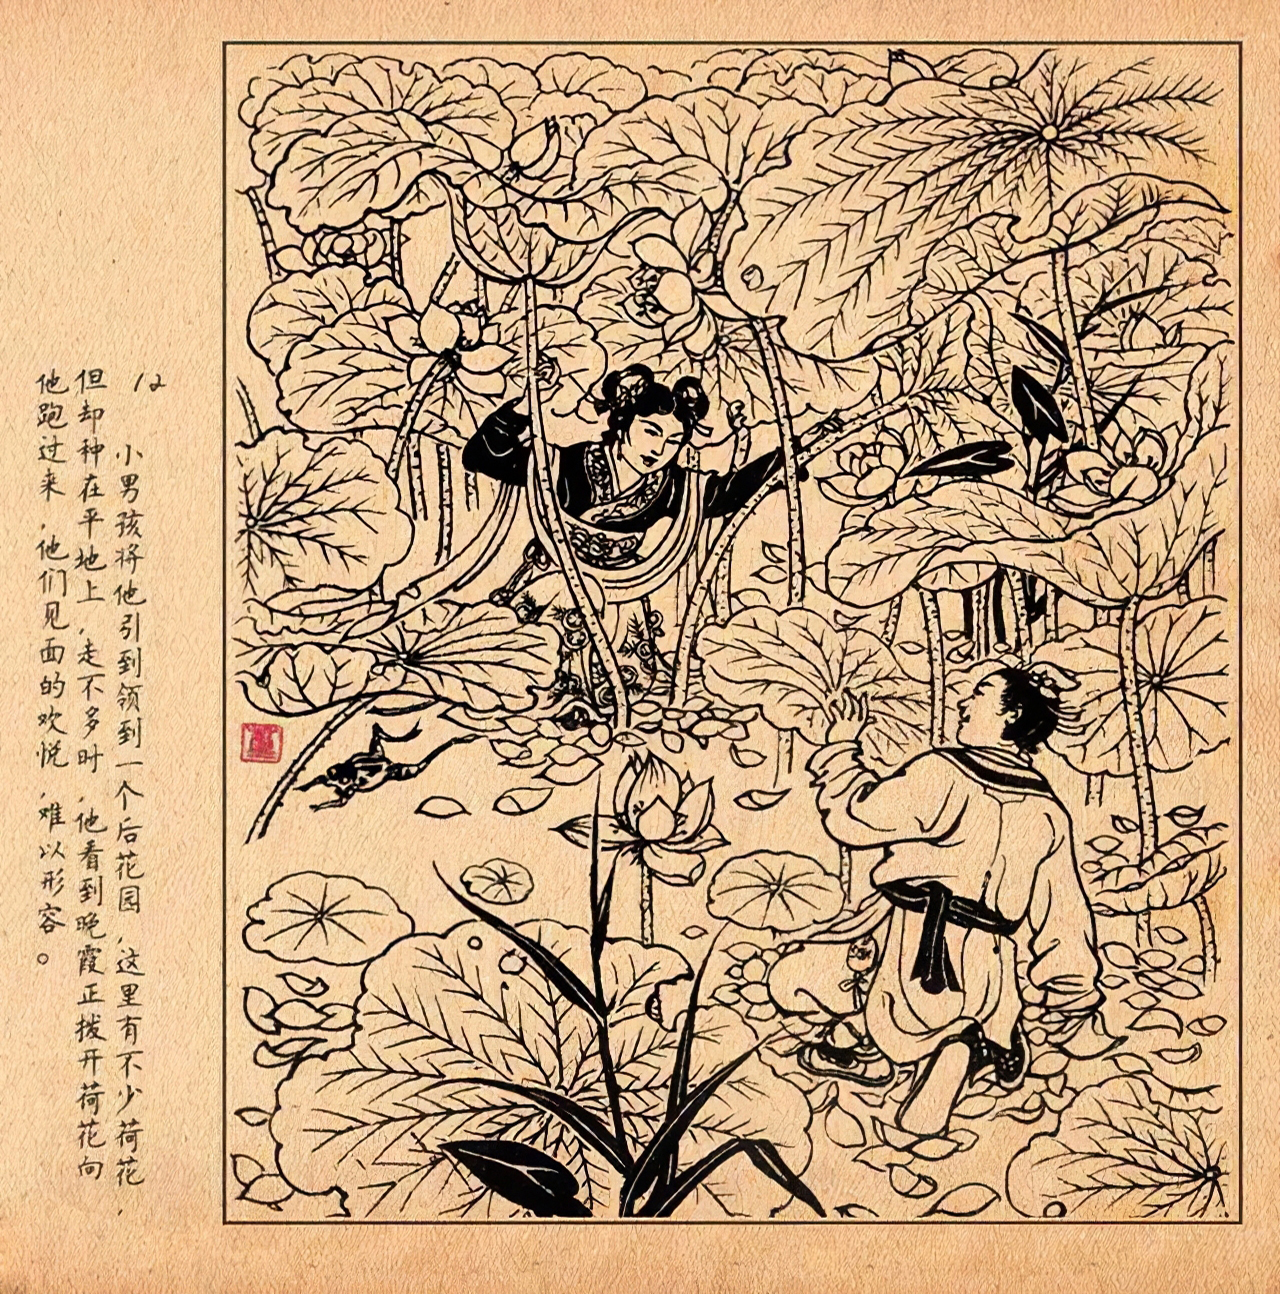 12
小男孩将他引到领到一个后花园，这里有不少荷花，
但却种在平地上，走不多时，他看到晚霞正拨开荷花向
他跑过来，他们见面的欢悦，难以形容。